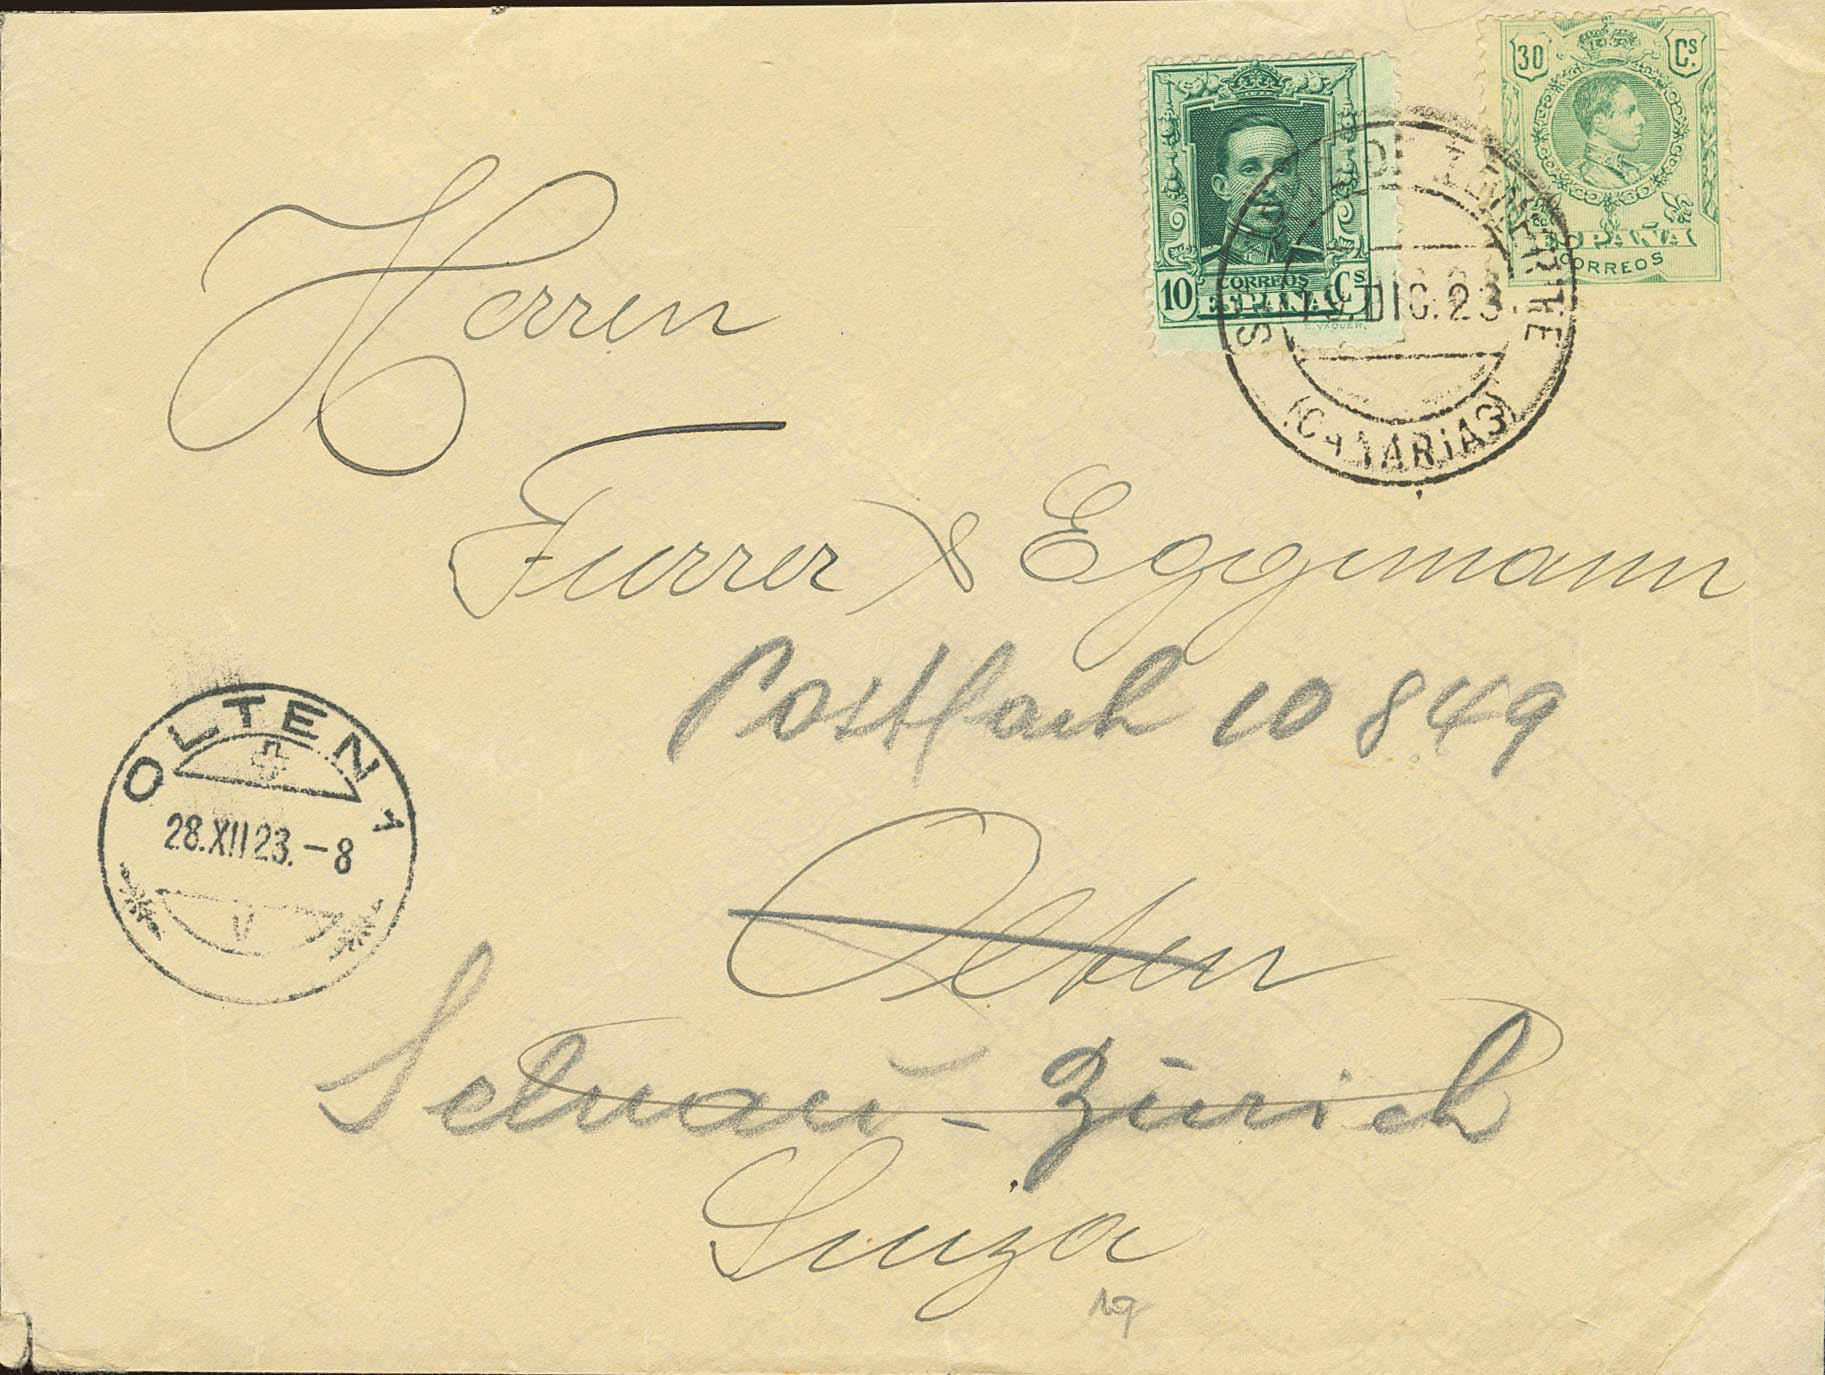 30 Cs.
ESPAÑA
CORREOS
10 Cs
CORREOS
ESPAÑA
E. VAQUER.
DE TENERIFE
DIC. 23
(CANARIAS)
Herren
Furrer & Eggimann
Postfach 10849
OLTEN 1
28.XII 23.-8
V
Olten
Selnau - Zürich
Suiza